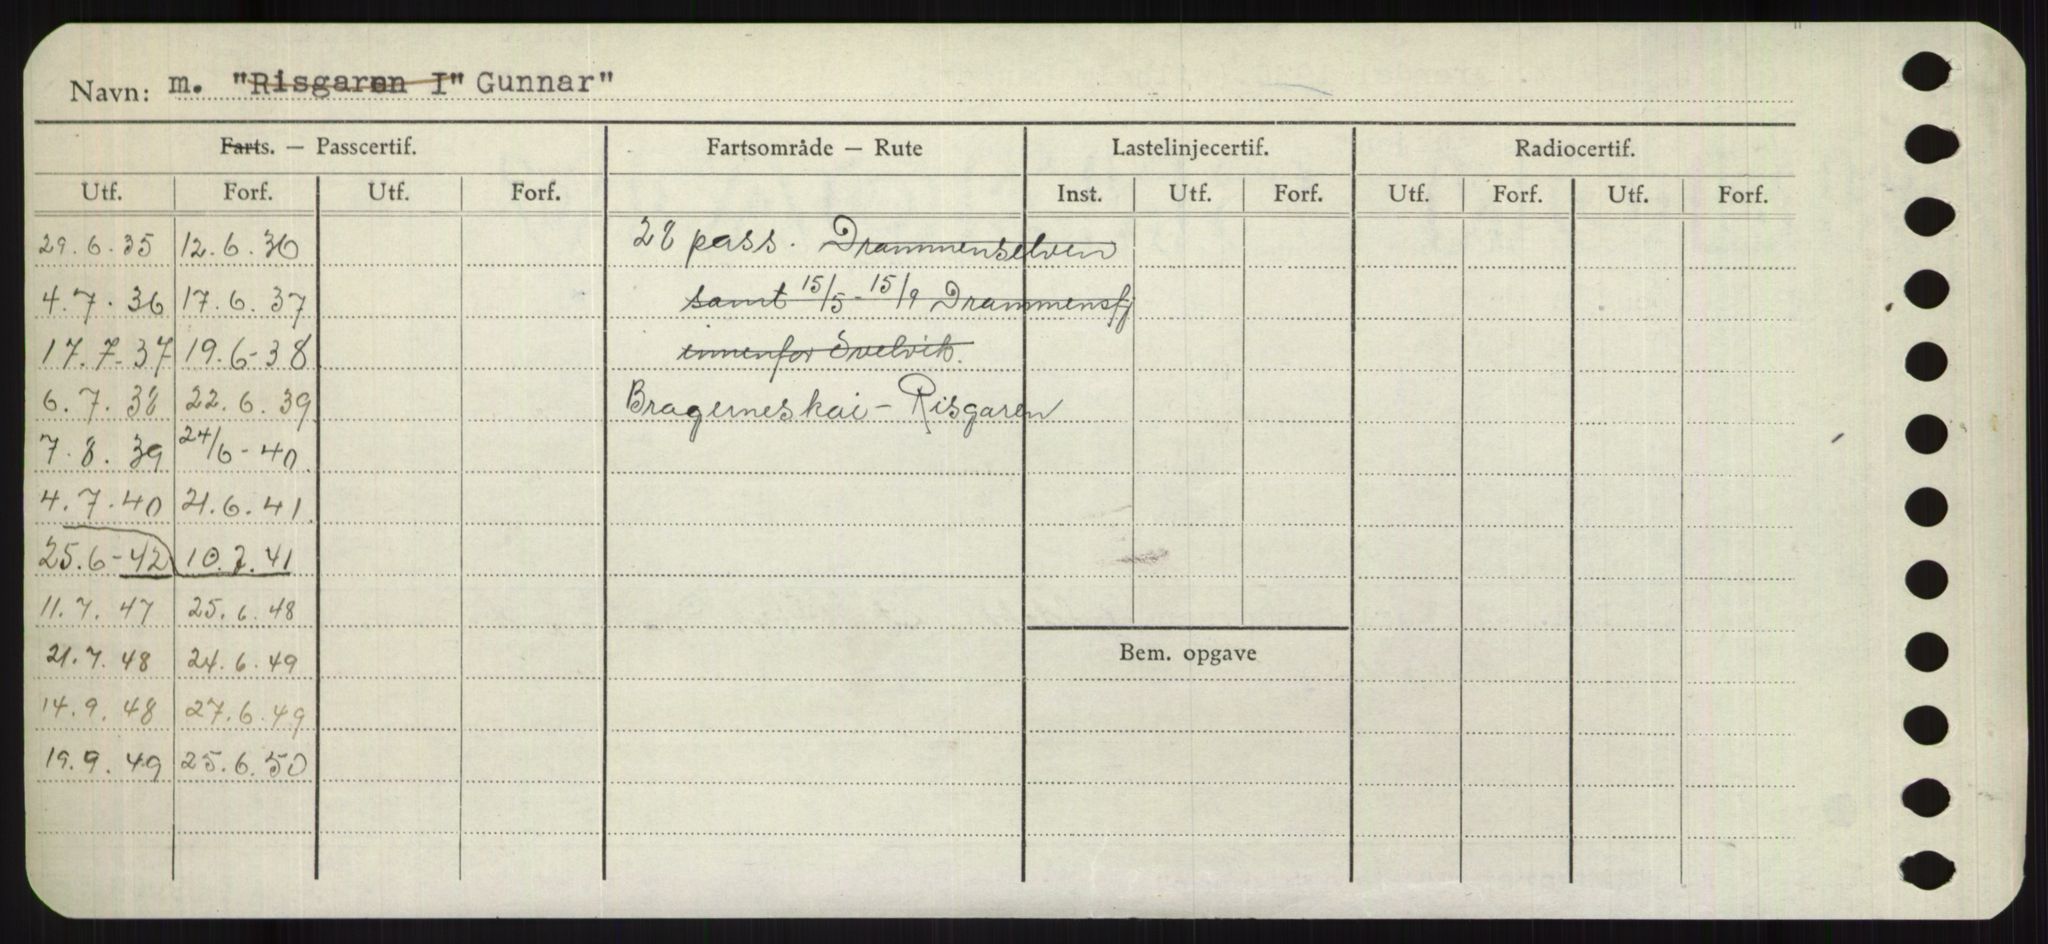 Navn: m. "Risgaren I" Gunnar"
Farts. — Passcertif. Fartsområde — Rute Lastelinjecertif. Radiocertif.
Utf. Forf. Utf. Forf. Inst. Utf. Forf. Utf. Forf. Utf. Forf.
29.6.35 12.6.36 28 pass. Drammenselven
4.7.36 17.6.37 samt 15/5-15/9 Drammensfj
17.7-37 19.6-38 innenfor Svelvik.
6.7.38 22.6.39 Bragerneskai - Risgaren
7.8.39 24/6-40
4.7.40 21.6.41
25.6-42 10.7.41
11.7.47 25.6.48
21.7.48 24.6.49
Bem. opgave
14.9.48 27.6.49
19.9.49 25.6.50